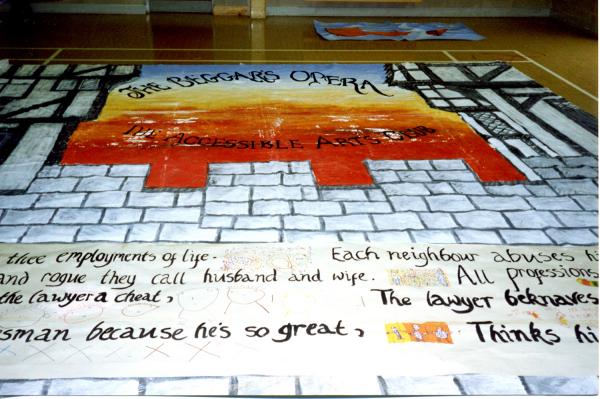 THE BEGGARS OPERA
THE ACCESSIBLE ART'S CLUB
thloe employments of life. Each neighbour abuses hi
and rogue they call husband and wife. All professions
the lawyer a cheat, The lawyer beknaves
sman because he's so great, Thinks hi